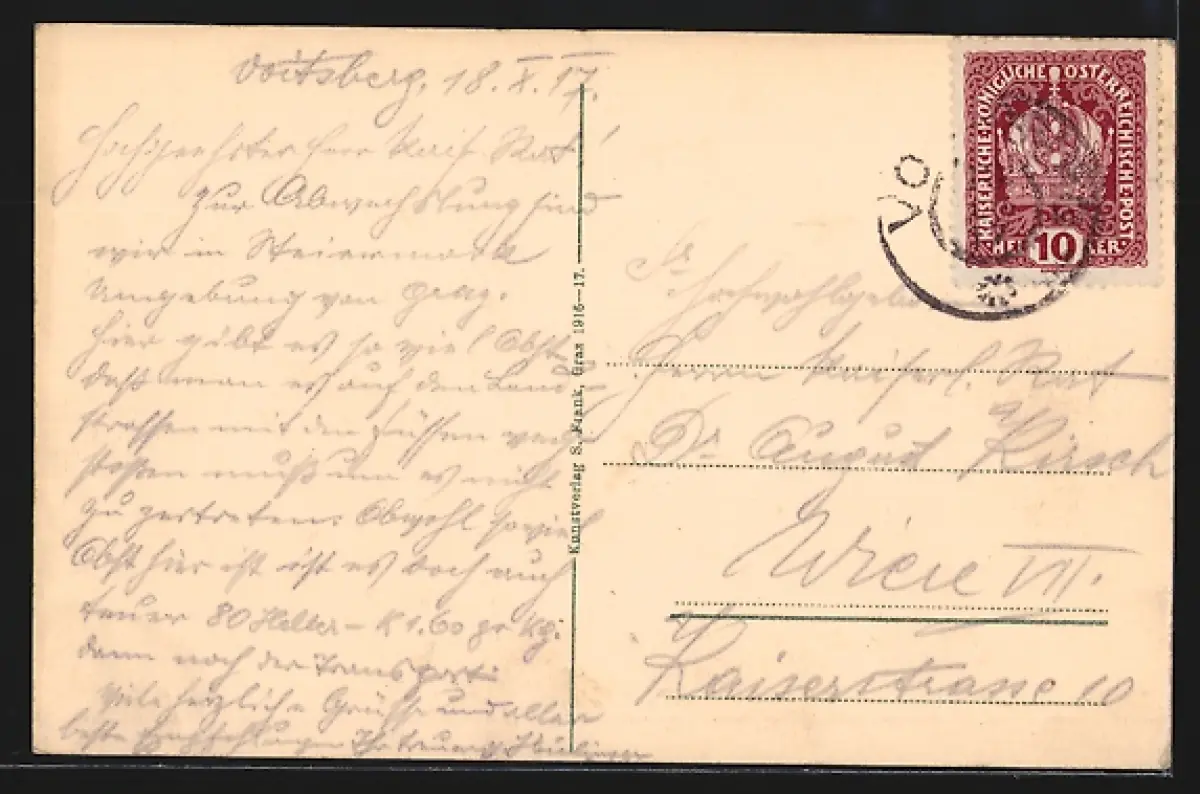 Voitsberg, 18. X. 17.
Hochgeehrter Herr Kais. Rat!
Zur Abwechslung sind
wir in Steiermark
Umgebung von Graz.
Hier gibt es so viel Obst
daß man es auf den Land-
strassen mit den Füssen
stoßen muß um es nicht
zu zertreten. Obwohl soviel
Obst hier ist ist es doch auch
teuer 80 Heller – K 1.60 pr Kg.
dann noch der Transport.
Viele herzliche Grüsse und allen
beste Empfehlungen Ihr
Kunstverlag S. Frank, Graz 1916—17.
KAISERLICHE KÖNIGLICHE ÖSTERREICHISCHE POST
HELLER
10
VO
Sr Hochwohlgeb
Herrn Kaiserl. Rat
Dr. August Kirsch
Wien VII.
Kaiserstrasse 10